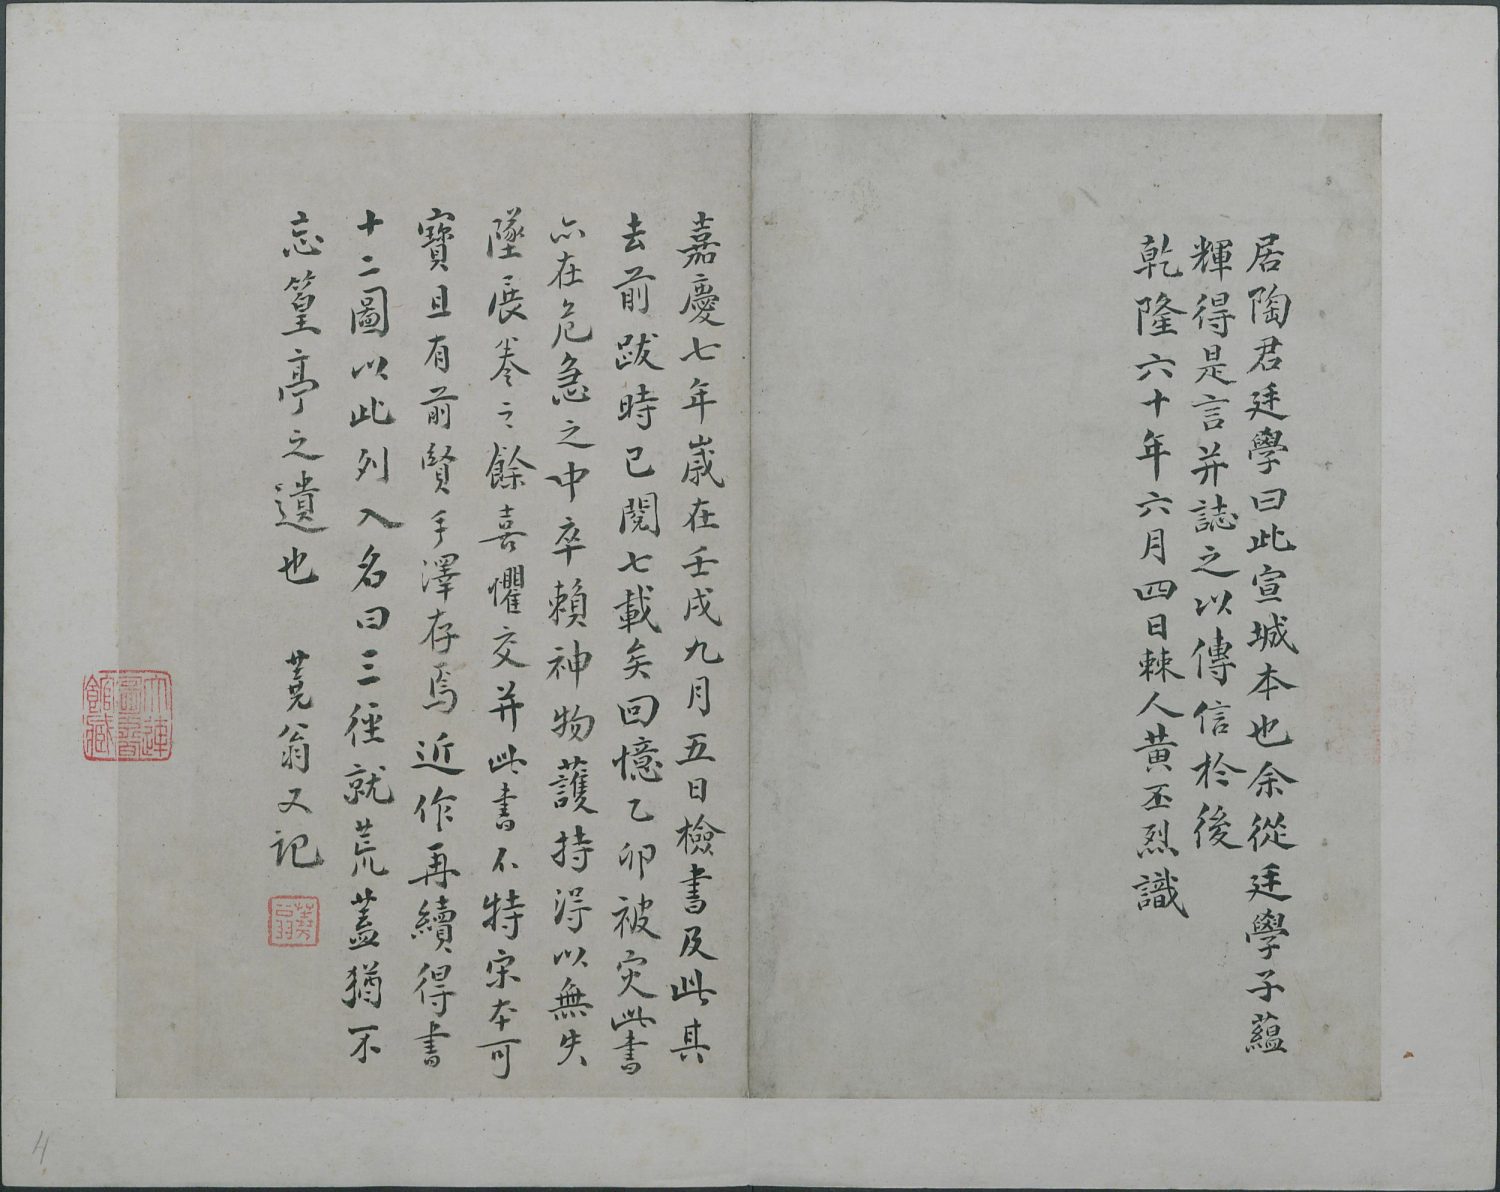 居陶君廷學曰此宣城本也余從廷學子蘊
輝得是言并誌之以傳信於後
乾隆六十年六月四日棘人黃丕烈識
嘉慶七年歲在壬戌九月五日檢書及此其
去前跋時已閱七載矣回憶乙卯被灾此書
亦在危急之中卒賴神物護持得以無失
墜展卷之餘喜懼交并此書不特宋本可
寶且有前賢手澤存焉近作再續得書
十二圖以此列入名曰三徑就荒蓋猶不
忘篁亭之遺也 蕘翁又記
蕘翁
大連圖書館藏
4